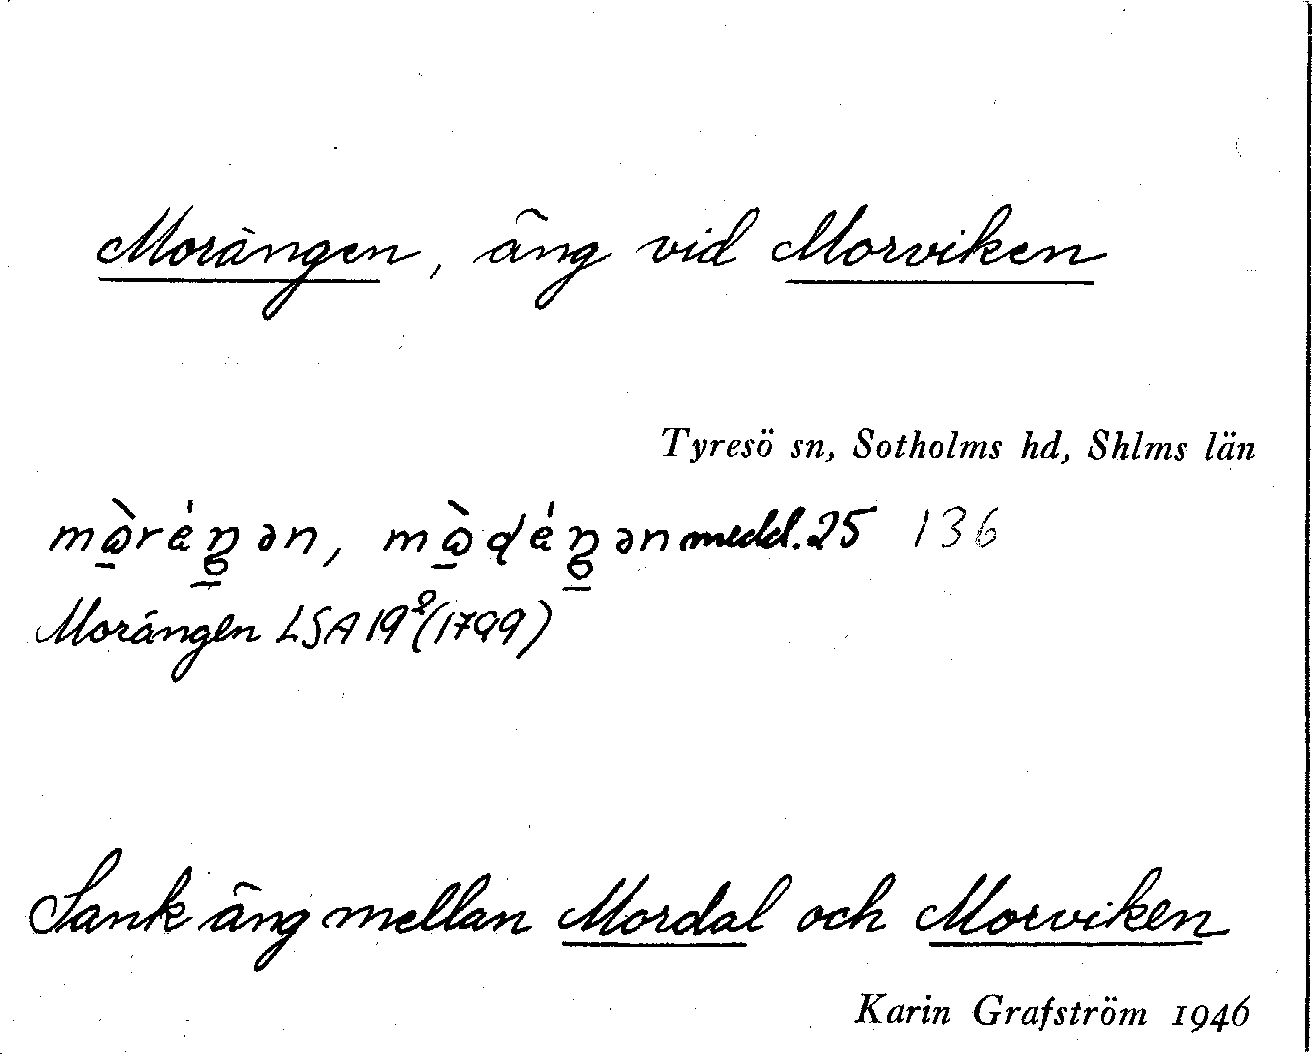 Morängen, äng vid Morviken
Tyresö sn, Sotholms hd, Shlms län
mὼ̲ré̵ŋ̲ən, mὼ̲ɖéŋ̲ən medd. 25 136
Morängen LSA 19²(1799)
Sank äng mellan Mordal och Morviken
Karin Grafström 1946